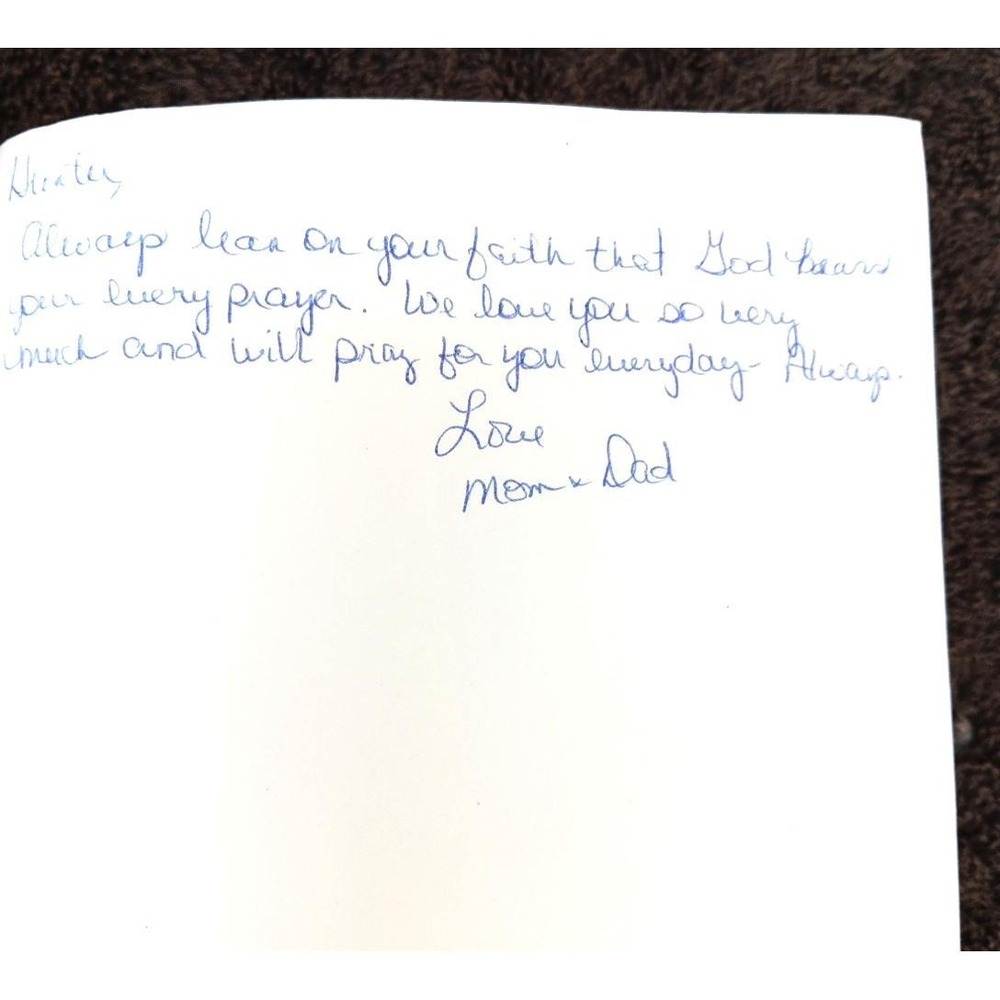 Hunter,
Always lean on your faith that God hears
your every prayer. We love you so very
much and will pray for you everyday- Always.
Love
Mom & Dad